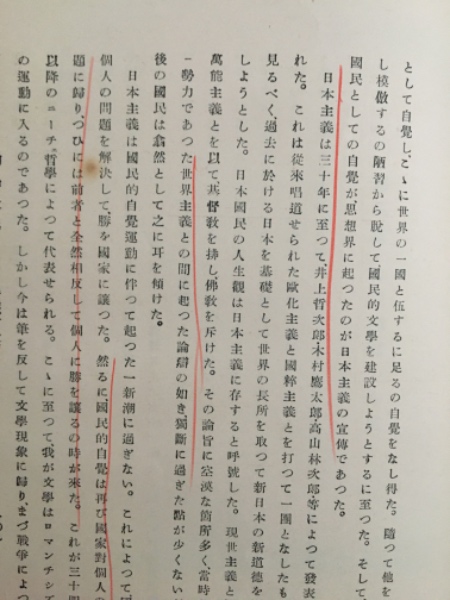 として自覺し、こゝに世界の一國と伍するに足るの自覺をなし得た。隨つて他を
し模倣するの陋習から脫して國民的文學を建設しようとするに至つた。そして、
國民としての自覺が、思想界に起つたのが日本主義の宣傳であつた。
日本主義は三十年に至つて、井上哲次郎・木村鷹太郎・高山林次郎等によつて發表
れた。これは從來唱道せられた歐化主義と國粹主義とを打つて一團となしたも
見るべく、過去に於ける日本を基礎として世界の長所を取つて新日本の新道德を
しようとした。日本國民の人生觀は日本主義に存すると呼號した。現世主義と
萬能主義とを以て基督敎を排し、佛敎を斥けた。その論旨に空漠な箇所多く、當時
一勢力であつた世界主義との間に起つた論辯の如き、獨斷に過ぎた點が少くない
後の國民は翕然として之に耳を傾けた。
日本主義は國民的自覺運動に伴つて起つた一新潮に過ぎない。これによつて國
個人の問題を解決して、勝を國家に讓つた。然るに國民的自覺は再び國家對個人の
題に歸り、つひには前者と全然相反して個人に勝を讓るの時が來た。これが三十四
以降のニーチェ哲學によつて代表せられる。こゝに至つて我が文學はロマンチシズ
の運動に入るのであつた。しかし今は筆を反して文學現象に歸り、まづ戰爭によつ